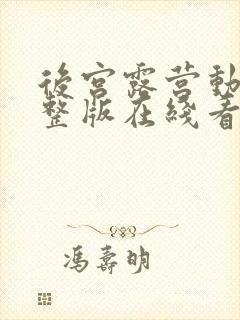 後宮露营動
整版在綫看
馮壽明